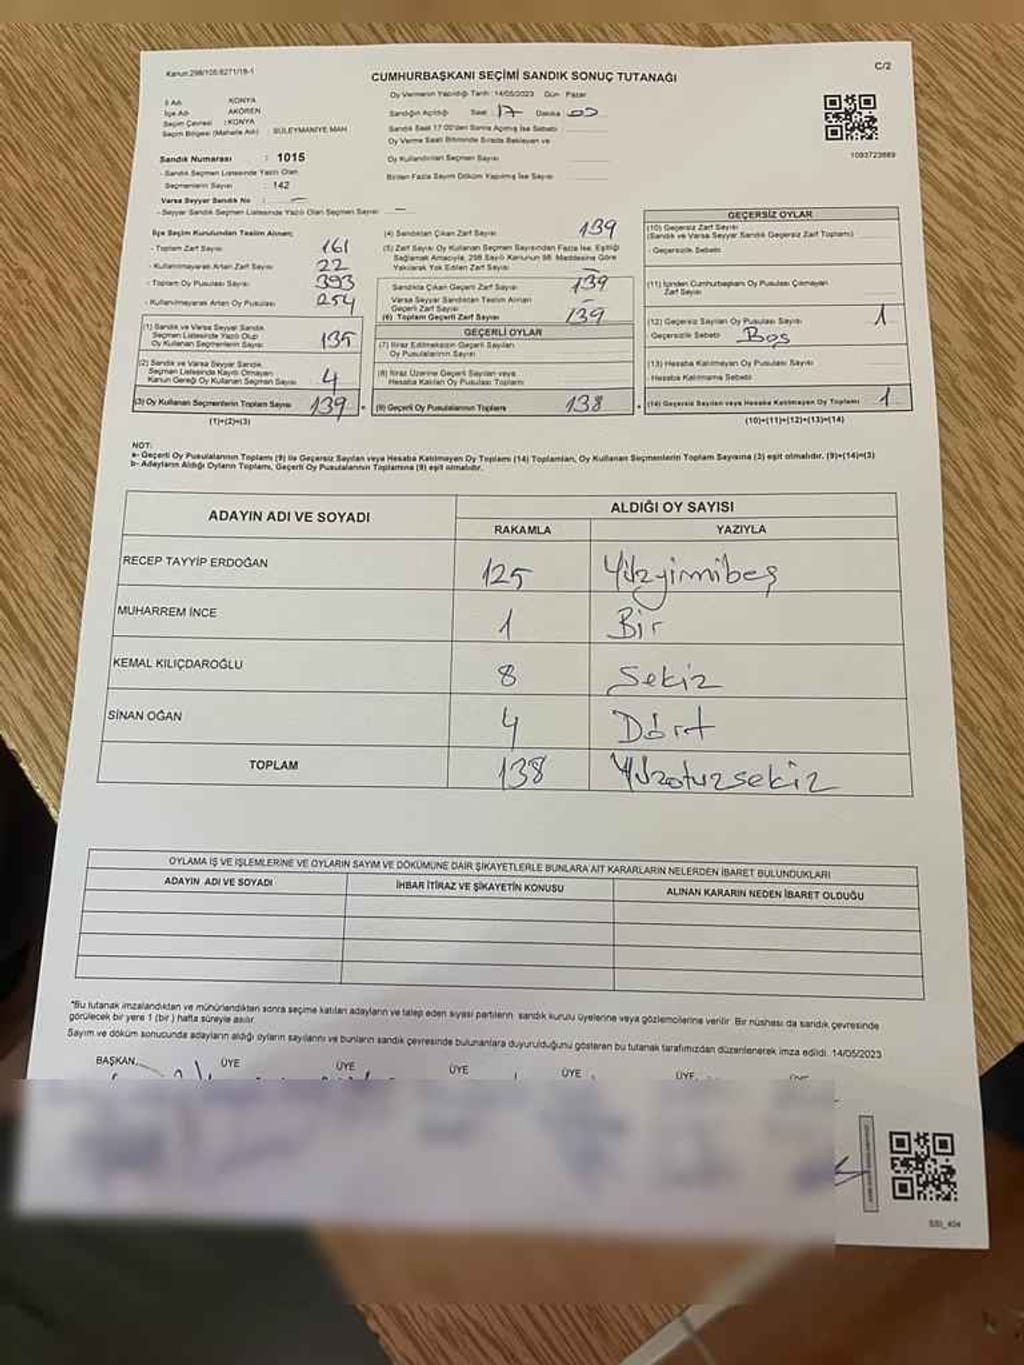 Kanun:298/105:6271/19-1
C/2
CUMHURBAŞKANI SEÇİMİ SANDIK SONUÇ TUTANAĞI
İl Adı KONYA
İlçe Adı AKÖREN
Seçim Çevresi :KONYA
Seçim Bölgesi (Mahalle Adı) SÜLEYMANİYE MAH
Sandık Numarası : 1015
- Sandık Seçmen Listesinde Yazılı Olan
Seçmenlerin Sayısı : 142
Varsa Seyyar Sandık No : –
- Seyyar Sandık Seçmen Listesinde Yazılı Olan Seçmen Sayısı –
Oy Vermenin Yapıldığı Tarih :14/05/2023 Gün Pazar
Sandığın Açıldığı Saat 17 Dakika 00
Sandık Saat 17.00'den Sonra Açılmış İse Sebebi
Oy Verme Saati Bitiminde Sırada Bekleyen ve
Oy Kullandırılan Seçmen Sayısı
Birden Fazla Sayım Döküm Yapılmış İse Sayısı
1093723689
İlçe Seçim Kurulundan Teslim Alınan;
- Toplam Zarf Sayısı 161
- Kullanılmayarak Artan Zarf Sayısı 22
- Toplam Oy Pusulası Sayısı 393
- Kullanılmayarak Artan Oy Pusulası 254
(1) Sandık ve Varsa Seyyar Sandık
Seçmen Listesinde Yazılı Olup
Oy Kullanan Seçmenlerin Sayısı 135
(2) Sandık ve Varsa Seyyar Sandık
Seçmen Listesinde Kayıtlı Olmayan
Kanun Gereği Oy Kullanan Seçmen Sayısı 4
(3) Oy Kullanan Seçmenlerin Toplam Sayısı 139
(1)+(2)=(3)
(4) Sandıktan Çıkan Zarf Sayısı 139
(5) Zarf Sayısı Oy Kullanan Seçmen Sayısından Fazla İse, Eşitliği
Sağlamak Amacıyla, 298 Sayılı Kanunun 98. Maddesine Göre
Yakılarak Yok Edilen Zarf Sayısı –
Sandıkta Çıkan Geçerli Zarf Sayısı 139
Varsa Seyyar Sandıktan Teslim Alınan
Geçerli Zarf Sayısı –
(6) Toplam Geçerli Zarf Sayısı 139
GEÇERLİ OYLAR
(7) İtiraz Edilmeksizin Geçerli Sayılan
Oy Pusulalarının Sayısı
(8) İtiraz Üzerine Geçerli Sayılan veya
Hesaba Katılan Oy Pusulası Toplamı
(9) Geçerli Oy Pusulalarının Toplamı 138
GEÇERSİZ OYLAR
(10) Geçersiz Zarf Sayısı
(Sandık ve Varsa Seyyar Sandık Geçersiz Zarf Toplamı)
- Geçersizlik Sebebi
(11) İçinden Cumhurbaşkanı Oy Pusulası Çıkmayan
Zarf Sayısı
(12) Geçersiz Sayılan Oy Pusulası Sayısı 1
Geçersizlik Sebebi Boş
(13) Hesaba Katılmayan Oy Pusulası Sayısı
- Hesaba Katılmama Sebebi
(14) Geçersiz Sayılan veya Hesaba Katılmayan Oy Toplamı 1
(10)+(11)+(12)+(13)=(14)
NOT:
a- Geçerli Oy Pusulalarının Toplamı (9) ile Geçersiz Sayılan veya Hesaba Katılmayan Oy Toplamı (14) Toplamları, Oy Kullanan Seçmenlerin Toplam Sayısına (3) eşit olmalıdır. (9)+(14)=(3)
b- Adayların Aldığı Oyların Toplamı, Geçerli Oy Pusulalarının Toplamına (9) eşit olmalıdır.
ADAYIN ADI VE SOYADI ALDIĞI OY SAYISI
RAKAMLA YAZIYLA
RECEP TAYYİP ERDOĞAN 125 Yüzyirmibeş
MUHARREM İNCE 1 Bir
KEMAL KILIÇDAROĞLU 8 Sekiz
SİNAN OĞAN 4 Dört
TOPLAM 138 Yüzotuzsekiz
OYLAMA İŞ VE İŞLEMLERİNE VE OYLARIN SAYIM VE DÖKÜMÜNE DAİR ŞİKAYETLERLE BUNLARA AİT KARARLARIN NELERDEN İBARET BULUNDUKLARI
ADAYIN ADI VE SOYADI İHBAR İTİRAZ VE ŞİKAYETİN KONUSU ALINAN KARARIN NEDEN İBARET OLDUĞU
*Bu tutanak imzalandıktan ve mühürlendikten sonra seçime katılan adayların ve talep eden siyasi partilerin sandık kurulu üyelerine veya gözlemcilerine verilir. Bir nüshası da sandık çevresinde
görülecek bir yere 1 (bir) hafta süreyle asılır.
Sayım ve döküm sonucunda adayların aldığı oyların sayılarını ve bunların sandık çevresinde bulunanlara duyurulduğunu gösteren bu tutanak tarafımızdan düzenlenerek imza edildi. 14/05/2023
BAŞKAN ÜYE ÜYE ÜYE ÜYE ÜYE
SSI_404